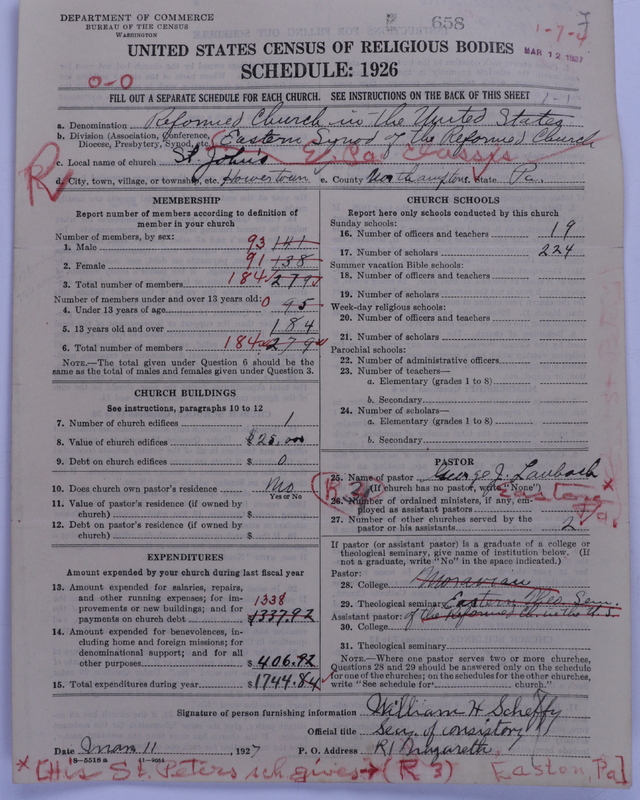 DEPARTMENT OF COMMERCE
BUREAU OF THE CENSUS
WASHINGTON
658
1-7-4
MAR 12 1927
UNITED STATES CENSUS OF RELIGIOUS BODIES
SCHEDULE: 1926
0-0
FILL OUT A SEPARATE SCHEDULE FOR EACH CHURCH. SEE INSTRUCTIONS ON THE BACK OF THIS SHEET
1-1
a. Denomination Reformed Church in the United States
b. Division (Association, Conference, Diocese, Presbytery, Synod, etc.) Eastern Synod of the Reformed Church
E. Pa. Classis
c. Local name of church St. John's
R
d. City, town, village, or township, etc. Howertown e. County Northampton State Pa.
MEMBERSHIP
Report number of members according to definition of
member in your church
Number of members, by sex:
1. Male 93 141
2. Female 91 138
3. Total number of members 184 279
Number of members under and over 13 years old:
4. Under 13 years of age 0 95
5. 13 years old and over 184
6. Total number of members 184 279
NOTE.—The total given under Question 6 should be
same as the total of males and females given under Question 3.
CHURCH BUILDINGS
See instructions, paragraphs 10 to 12
7. Number of church edifices 1
8. Value of church edifices $25,000
9. Debt on church edifices $ 0
10. Does church own pastor's residence No
Yes or No
11. Value of pastor's residence (if owned by
church) $
12. Debt on pastor's residence (if owned by
church) $
EXPENDITURES
Amount expended by your church during last fiscal year
13. Amount expended for salaries, repairs,
and other running expenses; for im-
provements or new buildings; and for
payments on church debt 1338 $1337.92
14. Amount expended for benevolences, in-
cluding home and foreign missions; for
denominational support; and for all
other purposes $406.92
15. Total expenditures during year $1744.84
CHURCH SCHOOLS
Report here only schools conducted by this church
Sunday schools:
16. Number of officers and teachers 19
17. Number of scholars 224
Summer vacation Bible schools:
18. Number of officers and teachers
19. Number of scholars
Week-day religious schools:
20. Number of officers and teachers
21. Number of scholars
Parochial schools:
22. Number of administrative officers
23. Number of teachers—
a. Elementary (grades 1 to 8)
b. Secondary
24. Number of scholars—
a. Elementary (grades 1 to 8)
b. Secondary
PASTOR
25. Name of pastor George J. Laubach
(If church has no pastor, write "None")
R 2 Easton Pa. *
26. Number of ordained ministers, if any, em-
ployed as assistant pastors
27. Number of other churches served by the
pastor or his assistants 2
If pastor (or assistant pastor) is a graduate of a college or
theological seminary, give name of institution below. (If
not a graduate, write "No" in the space indicated.)
Pastor:
28. College Moravian
29. Theological seminary Eastern Theo. Sem.
Assistant pastor: of the Reformed Ch. in the U.S.
30. College
31. Theological seminary
NOTE.—Where one pastor serves two or more churches,
Questions 28 and 29 should be answered only on the schedule
for one of the churches; on the schedules for the other churches,
write "See schedule for church."
Signature of person furnishing information William H Scheffy
Official title Secy. of consistory
Date Mar 11 1927 P. O. Address R1 Nazareth
8-5518 a
* [His St. Peters sch gives → (R 3) Easton, Pa]